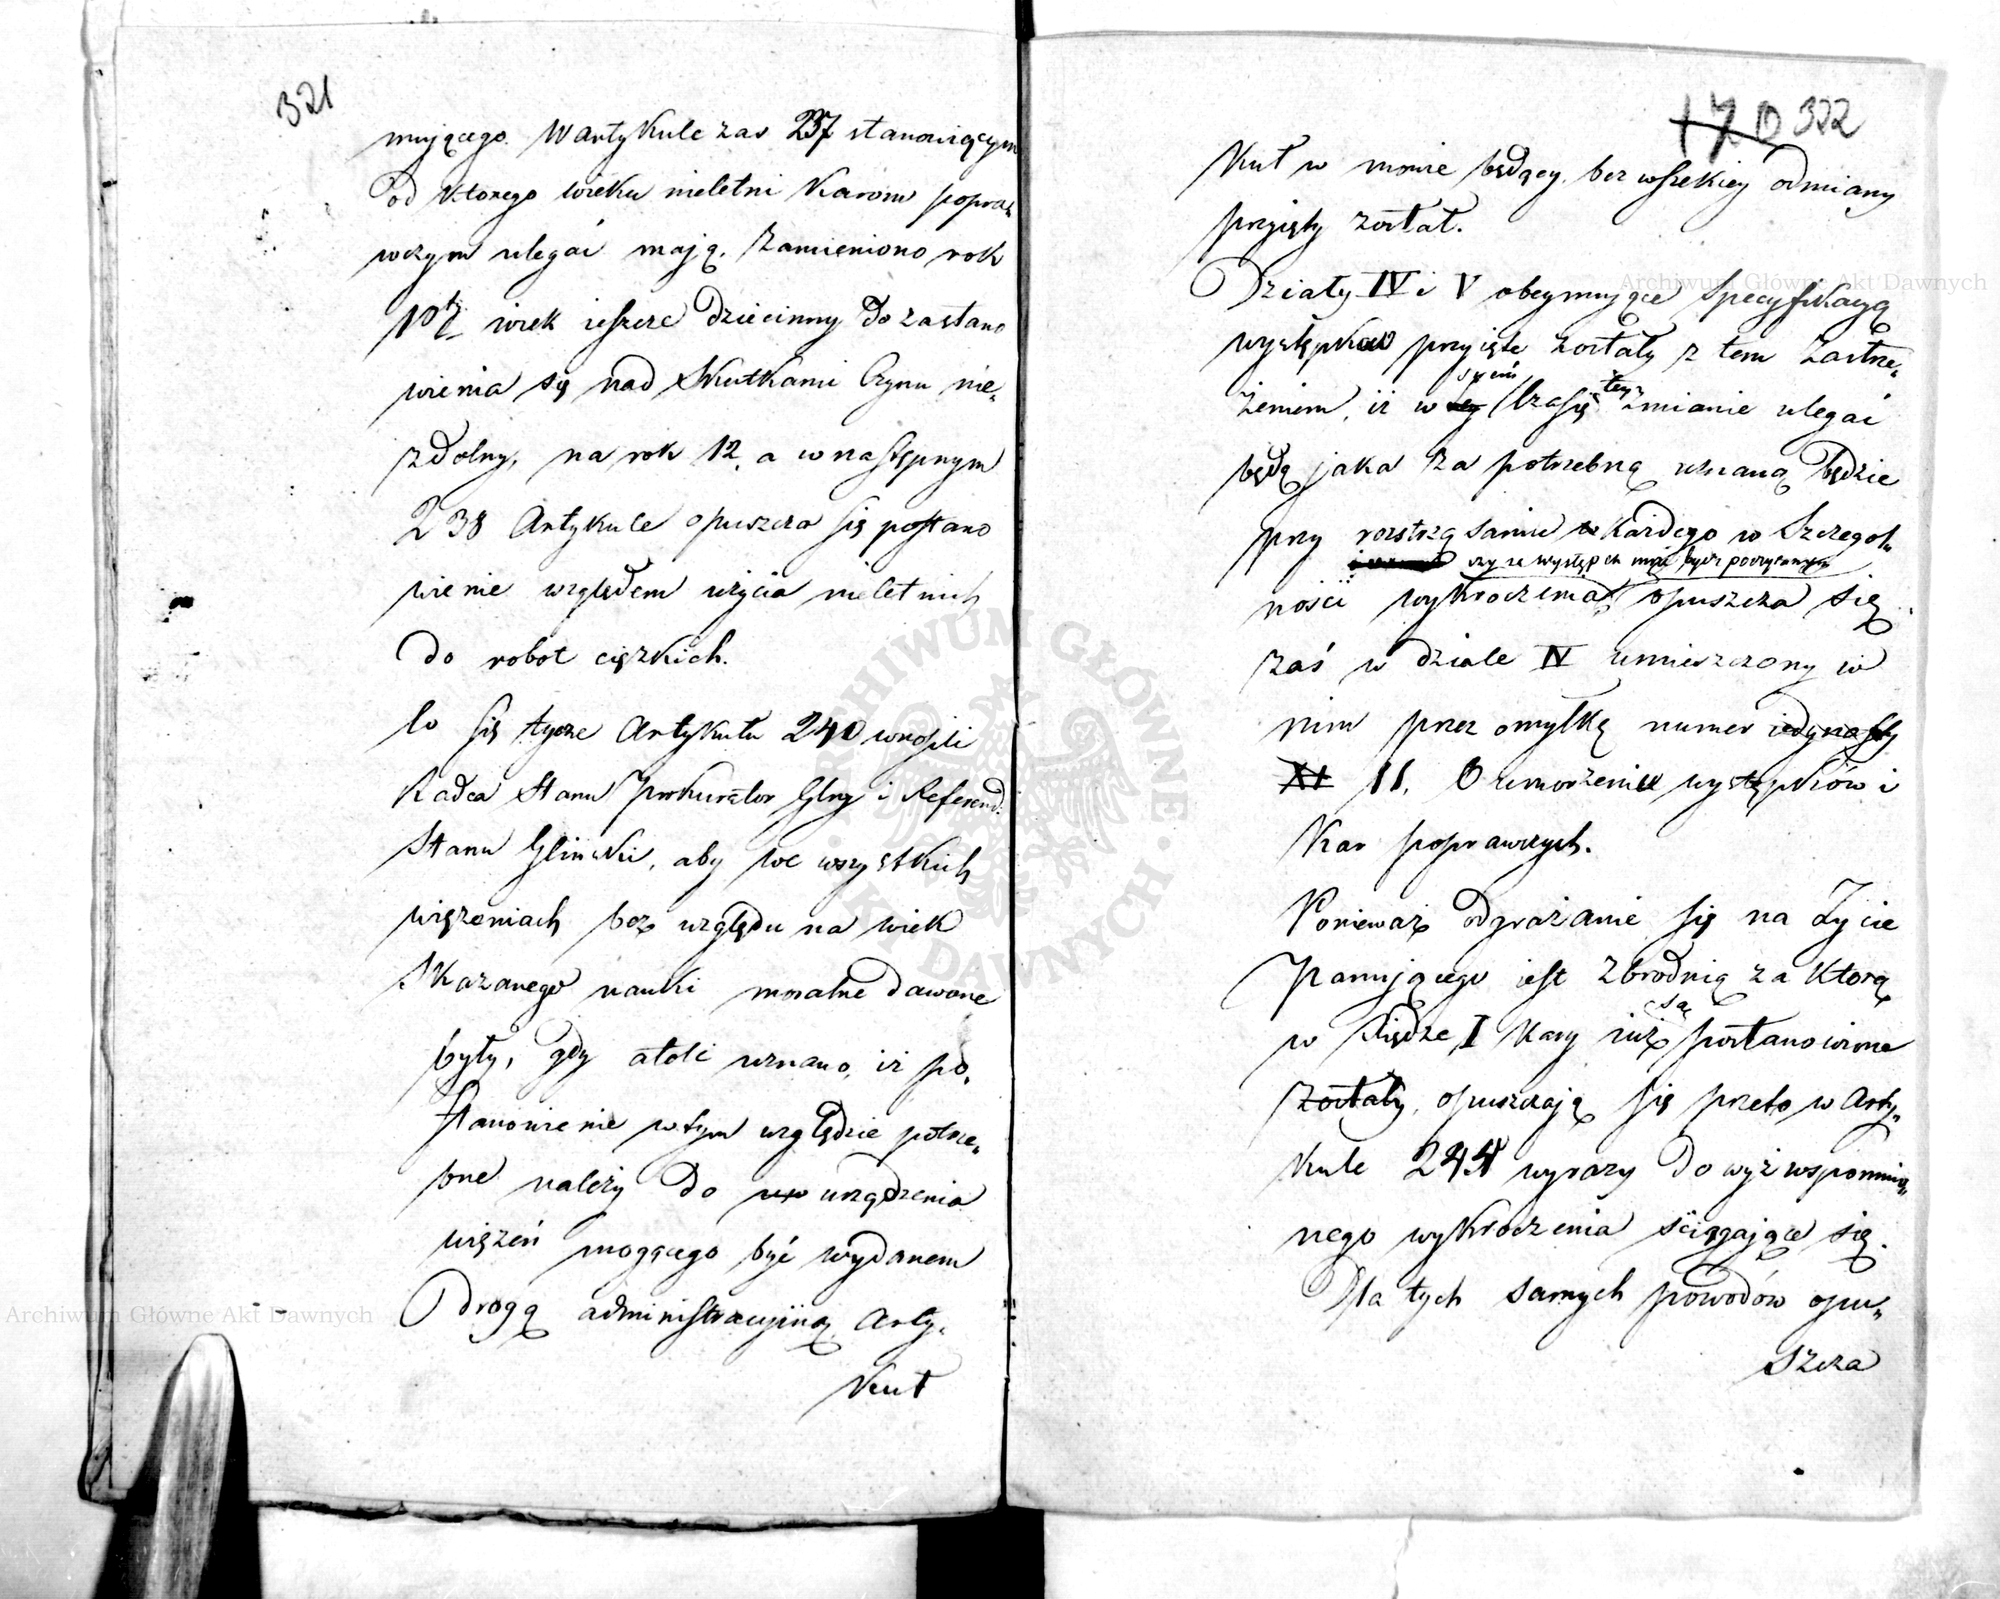 321
mującego. W artykule zas 237 stanowiącym
od ktorego wieku nieletni karom popra„
wczym ulegać mają. Zamieniono rok
10ty wiek ieszcze dziecinny do zastano
wienia się nad skutkami czynu nie„
zdolny, na rok 12, a w następnym
238 Artykule opuszcza się postano
wienie względem użycia nieletnich
do robot cięzkich.
Co się tycze Artykułu 240 wnosili
Radca Stanu Prokurator Glny i Referend.
Stanu Gliński, aby we wszystkich
więzeniach bez względu na wiek
skazanego nauki moralne dawane
były, gdy atoli uznano, iż po„
stanowienie w tym względzie potrze„
bne należy do urządzenia
więzeń mogącego być wydanem
drogą administracyiną, Arty„
kuł
170 322
kuł w mowie będący, bez wszelkiey odmiany
przyięty został.
Działy IV i V obeymujące specyfikacyą
występków przyięte zostały z tem zastrze„
żeniem, iż w swoim czasie tey zmianie ulegać
będą jaka za potrzebną uznaną będzie
przy rozstrząsaniu każdego w szczegol„
czy za występek może bydz poczytanym
ności wykroczenia, opuszcza się
zaś w dziale IV umieszczony w
nim przez omyłkę numer iedynasty
XI 11. O umorzeniu występków i
kar poprawczych.
Ponieważ odgrażanie się na życie
Panującego iest zbrodnią za którą
w Xiędze I kary iuż są postanowione
zostały, opuszczają się przeto w Arty„
kule 244 wyrazy do wyż wspomnio„
nego wykroczenia ściągające się.
Dla tych samych powodów opu„
szcza
Archiwum Główne Akt Dawnych
Archiwum Główne Akt Dawnych
ARCHIWUM GŁÓWNE AKT DAWNYCH